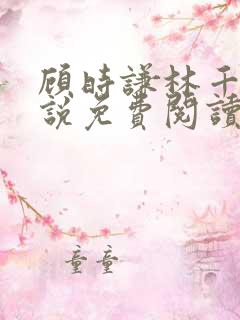 顾時謙林千
說免費閱讀
童童